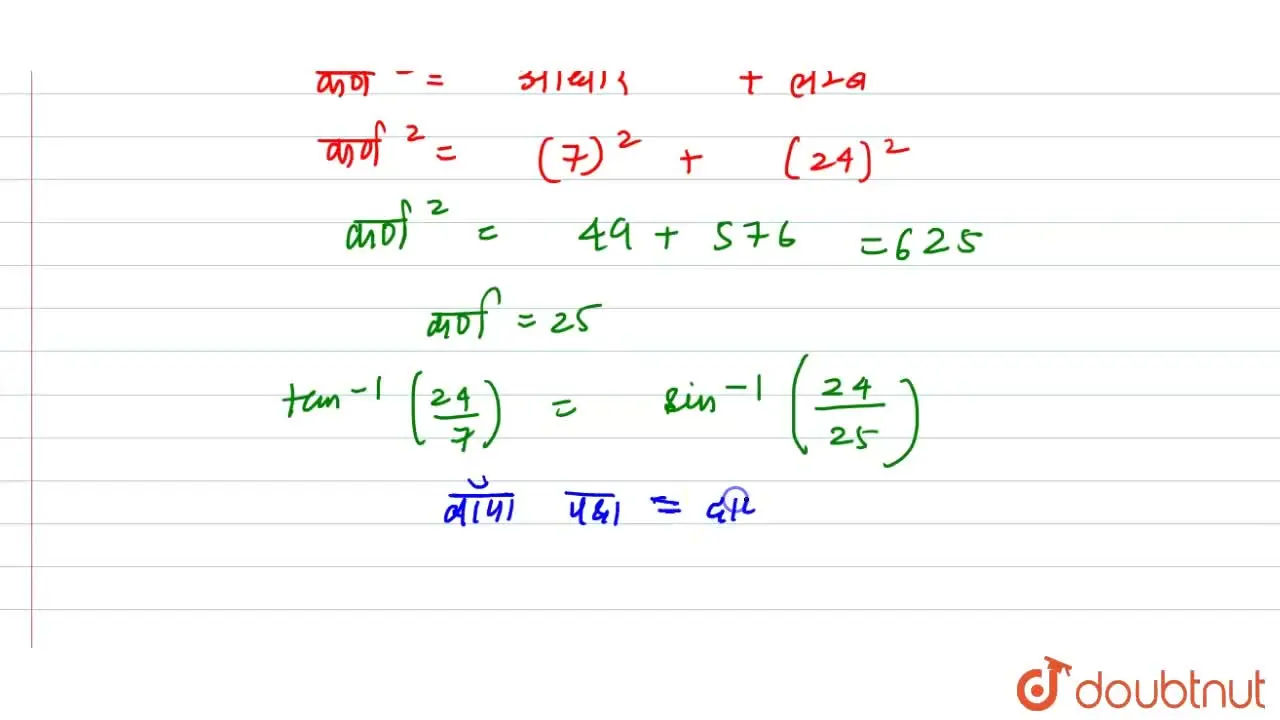 कर्ण² = आधार + लम्ब
कर्ण² = (7)² + (24)²
कर्ण² = 49 + 576 = 625
कर्ण = 25
tan⁻¹ (24/7) = sin⁻¹ (24/25)
बाँया पक्ष =
doubtnut